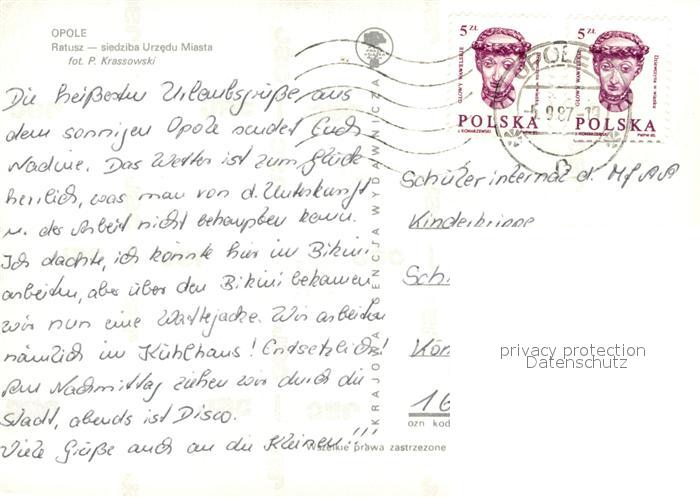 OPOLE
Ratusz — siedziba Urzędu Miasta
fot. P. Krassowski
Die heißesten Urlaubsgrüße aus
dem sonnigen Opole sendet Euch
Nadine. Das Wetter ist zum Glück
herrlich, was man von d. Unterkunft
u. der Arbeit nicht behaupten kann.
Ich dachte, ich könnte hier im Bikini
arbeiten, aber über den Bikini bekamen
wir nun eine Wattejacke. Wir arbeiten
nämlich im Kühlhaus! Entsetzlich!
Am Nachmittag ziehen wir durch die
Stadt, abends ist Disco.
Viele Grüße auch an die Kleinen!!!
KRAJOWA AGENCJA WYDAWNICZA
5 ZŁ
GŁOWY WAWELSKIE
POLSKA
J. KONARZEWSKI
PWPW 85
5 ZŁ
GŁOWY WAWELSKIE
Dziewczyna w wianku
POLSKA
J. KONARZEWSKI
PWPW 85
OPOLE
9.87.
Schülerinternat d. MfAA
Kinderkrippe
Sch
Kön
16
ozn kod
Wszelkie prawa zastrzeżone
privacy protection
Datenschutz